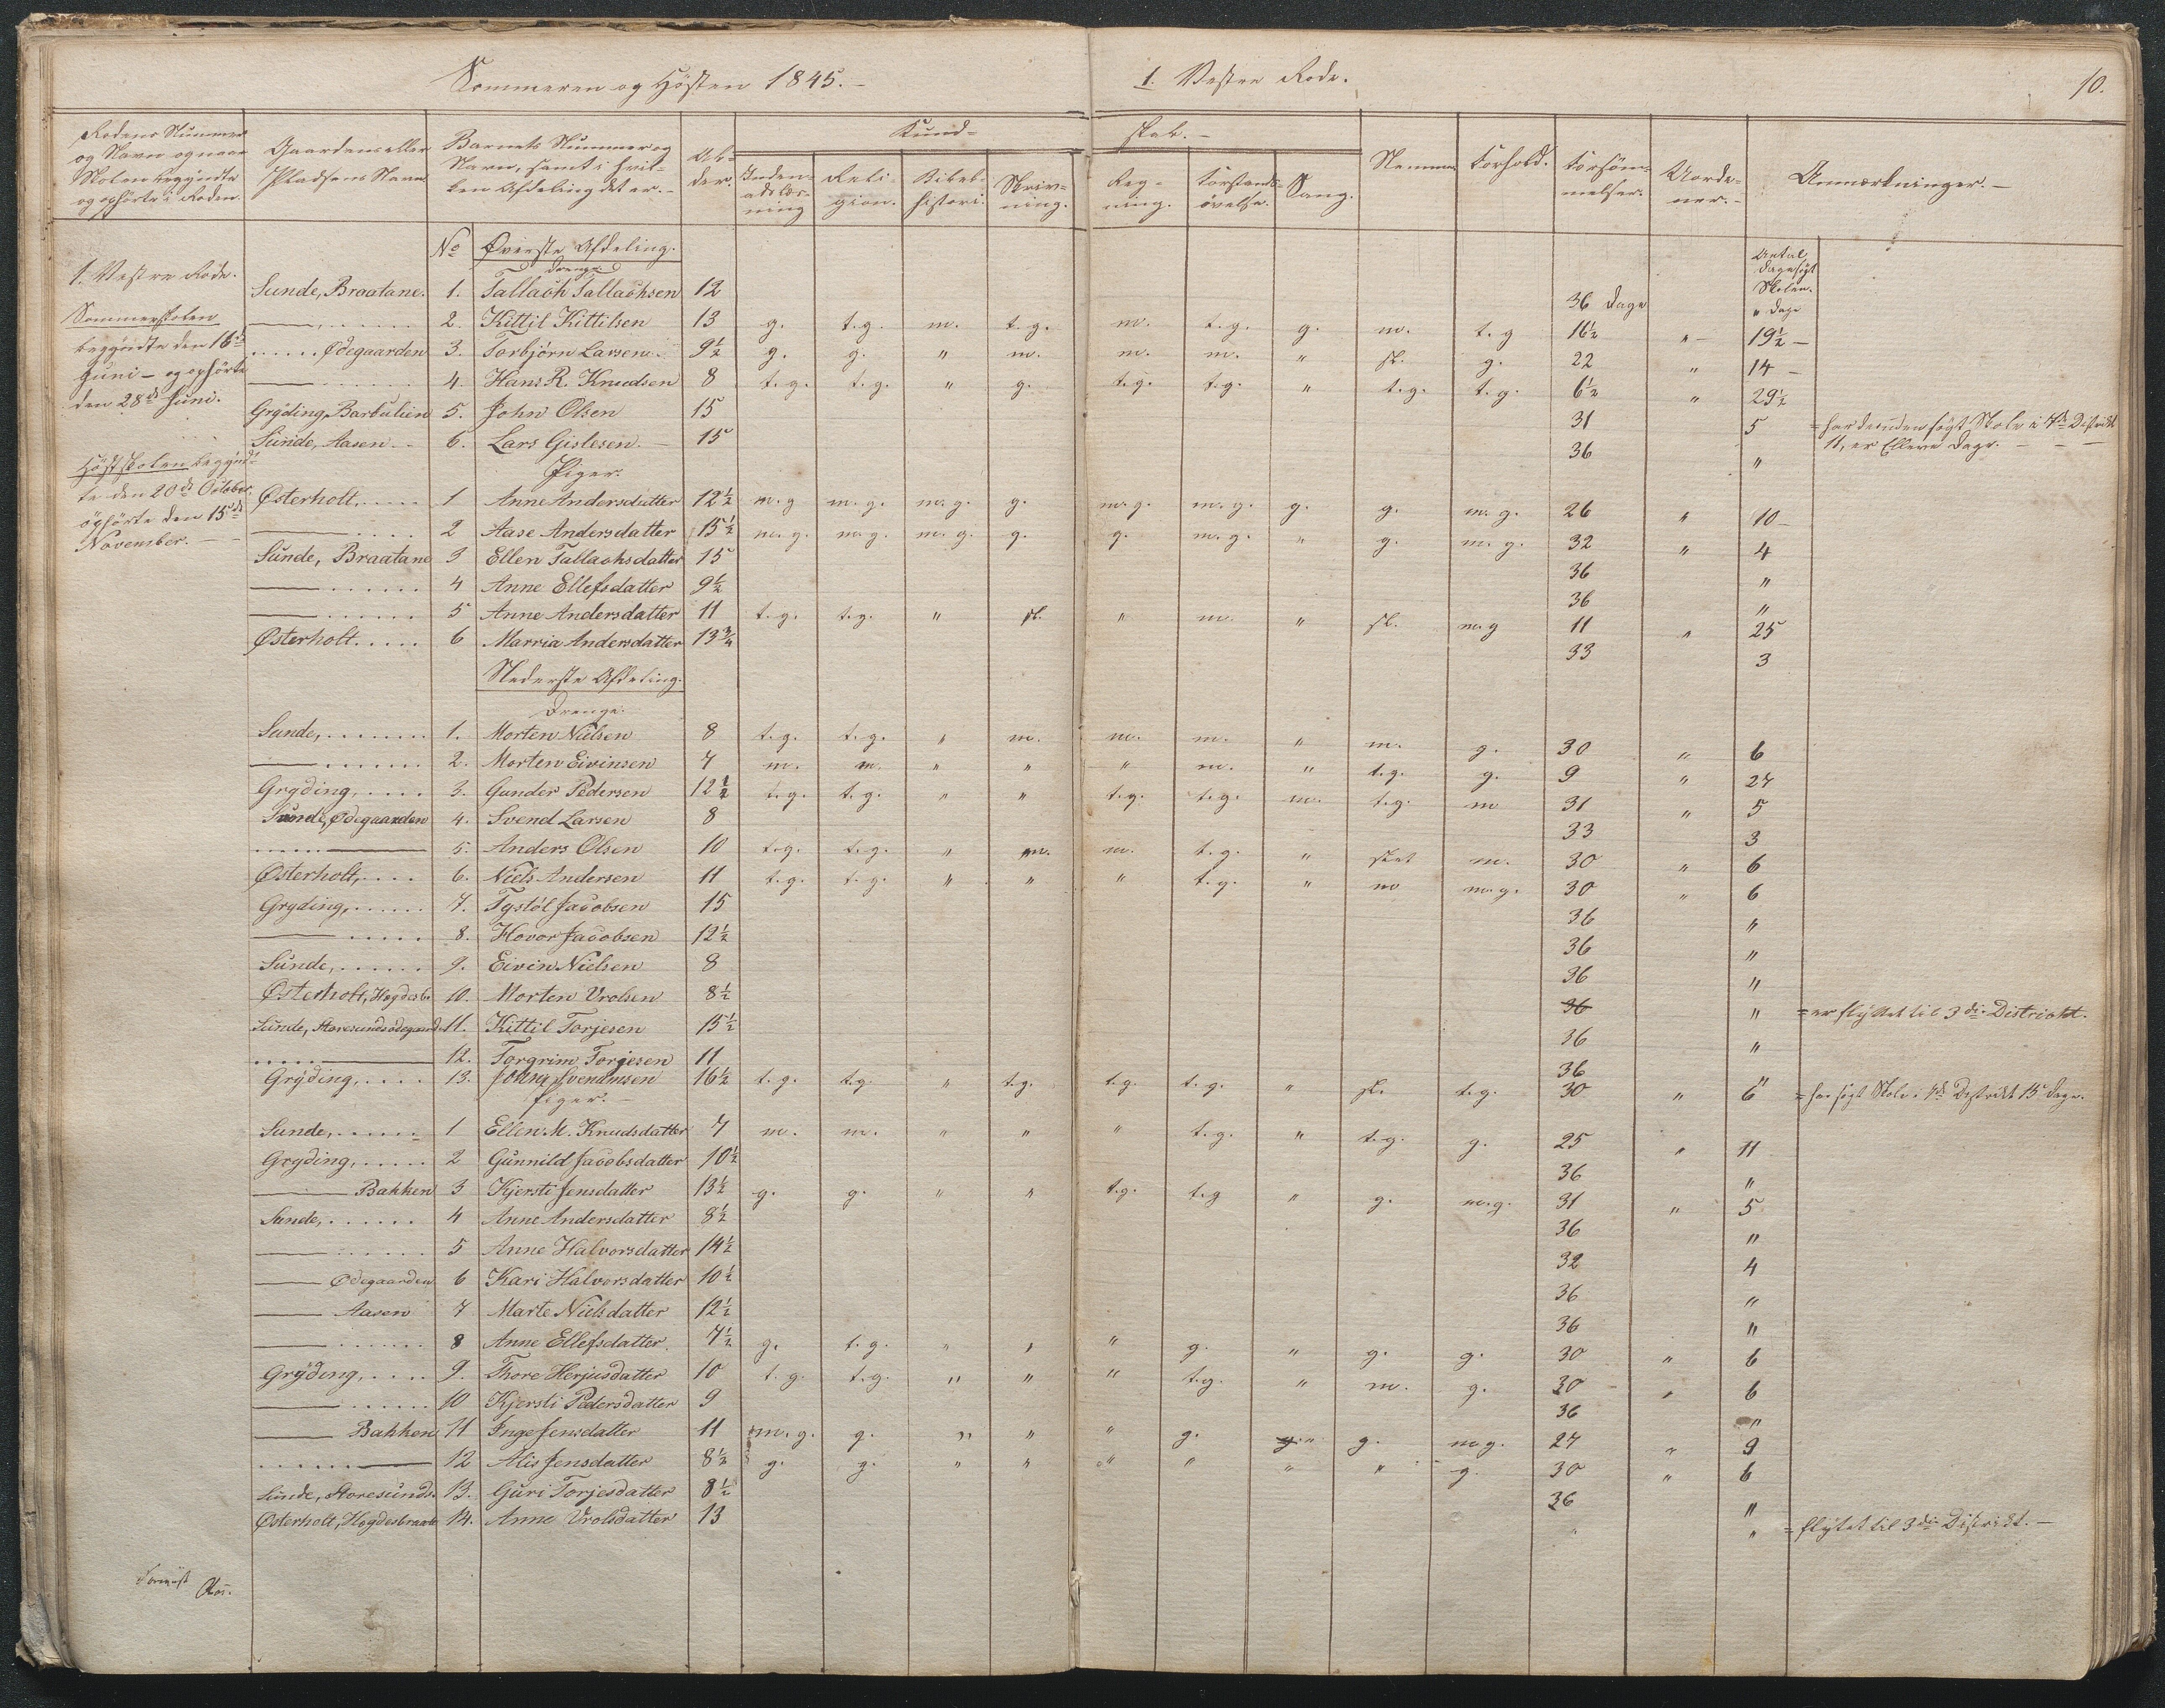 Sommeren og Høsten 1845.-
1. Vestre Rode.
10.
Rodens Nummer og Navn og naar Skolen begyndte og ophørte i Roden.
Gaardens eller Pladsens Navn
Barnets Nummer og Navn, samt i hvilken Afdeling det er.-
Alder.
Kundskab.-
Indenadslæsning
Religion.
Bibelhistorie.
Skrivning.
Regning.
Forstandsøvelse.
Sang.
Nemme
Forhold.
Forsømmelser.
Uordener.-
Anmærkninger.-
No Øverste Afdeling.
Drenge
Antal Dage søgt Skolen.
1. Vestre Rode.
Sommerskolen
begyndte den 16de
Juni - og ophørte
den 28de Juni.
Høstskolen begynd-
te den 20de October
ophørte den 15de
November.-
Sunde, Braatane. 1. Tallach Tallachsen 12 36 Dage " Dage
——, ...... 2. Kittil Kittilsen 13 g. t.g. m. t.g. m. t.g. g. m. t.g 16½ " - 19½ -
..... Ødegaarden 3. Torbjørn Larsen. 9½ g. g. " m. m. m. " sl. g. 22 " 14 -
—— ...... 4. Hans R. Knudsen 8 t.g. t.g. " g. t.g. t.g. " t.g. t.g. 6½ " 29½
Gryding, Barbulien 5. John Olsen 15 31 5 = har desuden søgt Skole i 4de Distrikt
11, er Elleve Dage. -
Sunde, Aasen. - 6. Lars Gislesen. - 15 36 "
Piger.
Østerholt. .... 1 Anne Andersdatter 12½ m.g m.g. m.g. g. m.g. m.g. g. g. m.g. 26 " 10 -
—— .... 2 Aase Andersdatter 15½ m.g. m.g. m.g. g. g. m.g. " g. m.g. 32 " 4
Sunde, Braatane 3 Ellen Tallachsdatter 15 36 "
—— ...... 4 Anne Ellefsdatter 9½ 36 "
—— ...... 5 Anne Andersdatter 11 t.g. t.g. " sl. " m. " sl. m.g 11 " 25
Østerholt. .... 6 Marria Andersdatter 13¾ 33 3
Nederste Afdeling.
Drenge.
Sunde, ........ 1. Morten Nielsen 8 t.g. t.g. " m. m. m. " m. g. 30 " 6
—— ...... 2. Morten Eivinsen 7 m. m. " " " m. " t.g. g. 9 " 27
Gryding, .... 3. Gunder Pedersen 12½ t.g. t.g. " " t.g. t.g. m. t.g. m 31 " 5
Sunde, Ødegaarden 4. Svend Larsen 8 33 3
...... —— 5. Anders Olsen 10 t.g. t.g. " m. m. t.g. " slet m. 30 " 6
Østerholt, .... 6. Niels Andersen 11 t.g. t.g. " " " t.g. " m m.g. 30 " 6
Gryding, ...... 7. Tystøl Jacobsen 15 36 "
—— ..... 8. Hovor Jacobsen 12½ 36 "
Sunde, ...... 9. Eivin Nielsen 8 36 "
Østerholt, Hogdesb. 10. Morten Vrolsen 8½ 36 " = er flyttet til 3die District.
Sunde, Storesundsødegaard. 11. Kittil Torjesen 15½ 36 "
...... —— 12. Torgrim Torjesen 11 36 "
Gryding, .... 13. John Svenumsen 16½ t.g. t.g. " t.g. t.g. t.g. " sl. t.g. 30 " 6 = har søgt Skole i 4de Distrikt 15 Dage.
Piger. -
Sunde, ..... 1 Ellen M. Knudsdatter 7 m. m. " " " t.g. " t.g. g. 25 " 11
Gryding, ..... 2 Gunnild Jacobsdatter 10½ 36 "
—— Bakken 3 Kjersti Jensdatter 13½ g. g. " " t.g. t.g " g. m.g. 31 " 5
Sunde, ...... 4 Anne Andersdatter 8½ 36 "
—— ...... 5 Anne Halvorsdatter 14½ 32 4
—— Ødegaarden 6 Kari Halvorsdatter 10½ 36 "
—— Aasen 7 Marte Nielsdatter 12½ 36 "
—— ...... 8 Anne Ellefsdatter. 7½ g. t.g. " " " g. " g. g. 30 " 6
Gryding, .... 9. Thore Herjusdatter 10 t.g. t.g. " " " t.g. " m. g. 30 " 6
—— ..... 10 Kjersti Pedersdatter 9 36 "
—— Bakken 11 Inge Jensdatter 11 m.g. g. " " " g. g. " g. m.g. 27 " 9
...... —— 12 Alis Jensdatter 8½ g. g. " " " " " " g. 30 " 6
Sunde, Storesunds. 13. Guri Torjesdatter 8½ 36 "
Østerholt, Hogdesbraate 14. Anne Vrolsdatter 13 " = flytet til 3die Distrikt. -